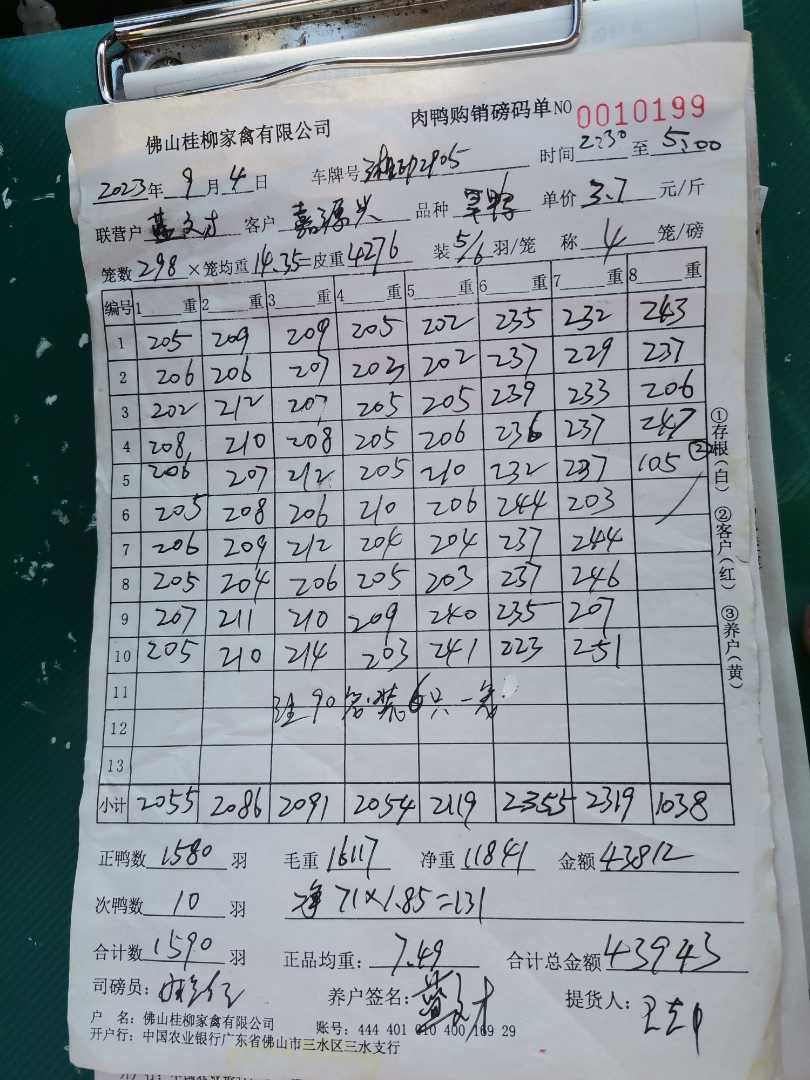 佛山桂柳家禽有限公司 肉鸭购销磅码单 NO 0010199
2023年9月4日 车牌号 2905 时间 2230 至 5:00
联营户 蓝文才 客户 嘉源兴 品种 单价 3.7 元/斤
笼数 298 ×笼均重 14.35 =皮重 4276 装 5/6 羽/笼 称 4 笼/磅
编号 1 重 2 重 3 重 4 重 5 重 6 重 7 重 8 重
1 205 209 209 205 202 235 232 243
2 206 206 207 203 202 237 229 237
3 202 212 207 205 205 239 233 206
4 208 210 208 205 206 236 237 247
5 206 207 212 205 210 232 237 105 ②
6 205 208 206 210 206 244 203
7 206 209 212 204 204 237 244
8 205 204 206 205 203 237 246
9 207 211 210 209 240 235 207
10 205 210 214 203 241 223 251
11
注90笼装6只一笼
12
13
小计 2055 2086 2091 2054 2119 2355 2319 1038
①存根(白) ②客户(红) ③养户(黄)
正鸭数 1580 羽 毛重 16117 净重 11841 金额 43812
次鸭数 10 羽 净 71×1.85=131
合计数 1590 羽 正品均重: 7.49 合计总金额 43943
司磅员: 养户签名: 蓝文才 提货人:
户 名: 佛山桂柳家禽有限公司 账号: 444 401 010 400 169 29
开户行: 中国农业银行广东省佛山市三水区三水支行